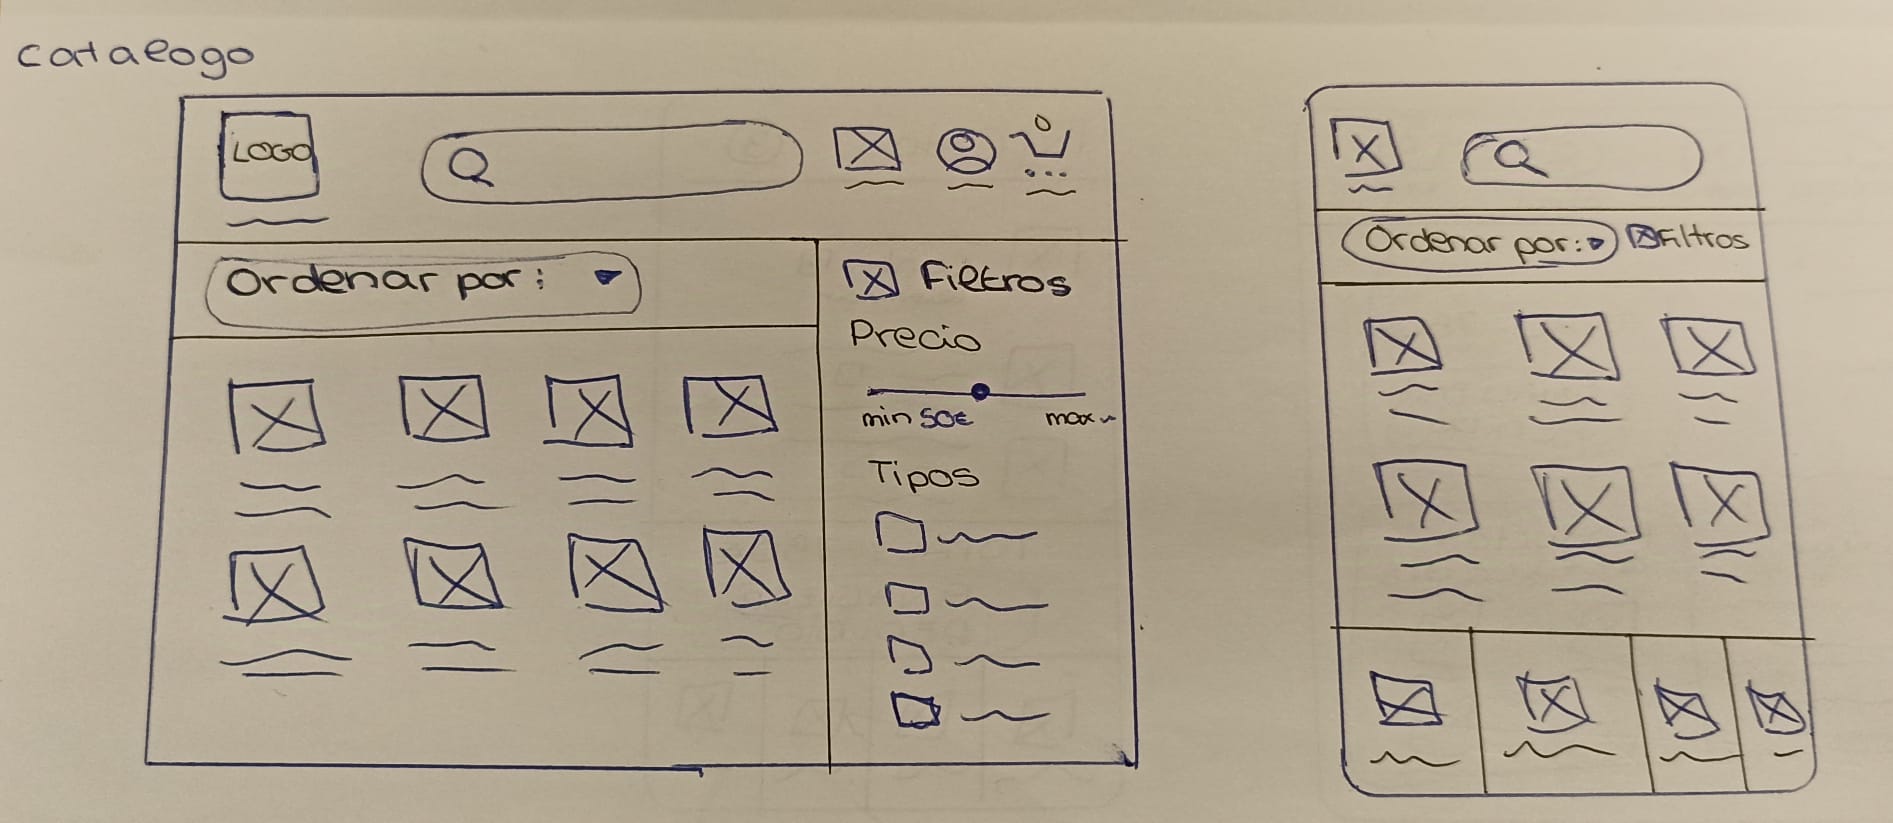 catalogo
LOGO
Ordenar por:
Filtros
Precio
min 50€ max
Tipos
Ordenar por:
Filtros